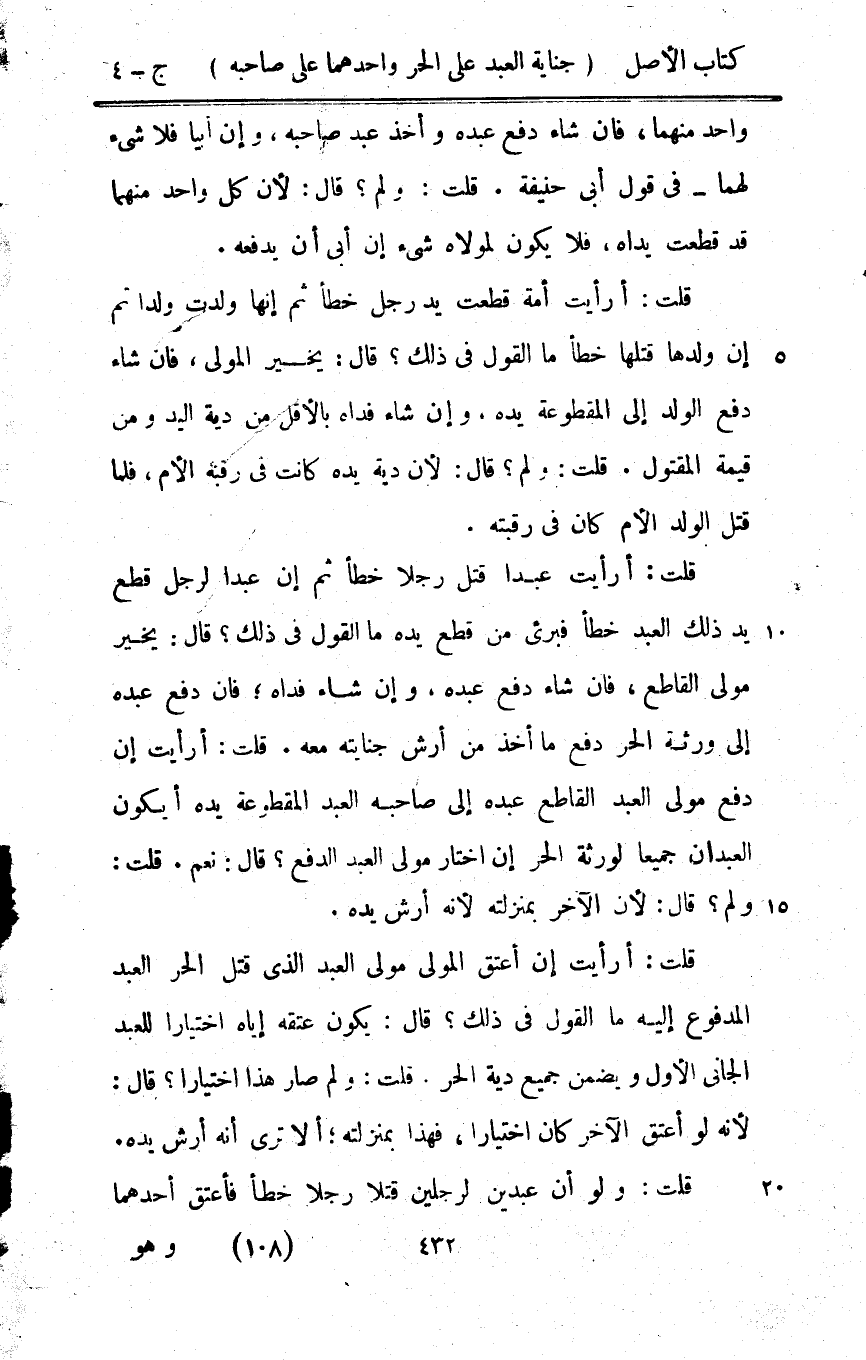 كتاب الأصل ( جناية العبد على الحر واحدهما على صاحبه ) ج - ٤
واحد منهما، فان شاء دفع عبده و أخذ عبد صاحبه ، و إن أبيا فلا شىء
لهما - فى قول أبى حنيفة . قلت : و لم ؟ قال : لأن كل واحد منهما
قد قطعت يداه، فلا يكون لمولاه شىء إن أبى أن يدفعه .
قلت : أ رأيت أمة قطعت يد رجل خطأ ثم إنها ولدت ولدا ثم
٥ إن ولدها قتلها خطأ ما القول فى ذلك ؟ قال : يخير المولى ، فان شاء
دفع الولد إلى المقطوعة يده ، و إن شاء فداه بالأقل من دية اليد و من
قيمة المقتول . قلت : و لم ؟ قال : لأن دية يده كانت فى رقبة الأم ، فلما
قتل الولد الأم كان فى رقبته .
قلت : أ رأيت عبدا قتل رجلا خطأ ثم إن عبدا لرجل قطع
١٠ يد ذلك العبد خطأ فبرئ من قطع يده ما القول فى ذلك ؟ قال : يخير
مولى القاطع ، فان شاء دفع عبده ، و إن شاء فداه ؛ فان دفع عبده
إلى ورثة الحر دفع ما أخذ من أرش جنايته معه . قلت : أ رأيت إن
دفع مولى العبد القاطع عبده إلى صاحبه العبد المقطوعة يده أ يكون
العبدان جميعا لورثة الحر إن اختار مولى العبد الدفع ؟ قال : نعم . قلت :
١٥ و لم ؟ قال : لأن الآخر بمنزلته لأنه أرش يده .
قلت : أ رأيت إن أعتق المولى مولى العبد الذى قتل الحر العبد
المدفوع إليه ما القول فى ذلك ؟ قال : يكون عتقه إياه اختيارا للعبد
الجانى الأول و يضمن جميع دية الحر . قلت : و لم صار هذا اختيارا ؟ قال :
لأنه لو أعتق الآخر كان اختيارا ، فهذا بمنزلته ؛ أ لا ترى أنه أرش يده .
٢٠ قلت : و لو أن عبدين لرجلين قتلا رجلا خطأ فأعتق أحدهما
٤٣٢ (١٠٨) و هو